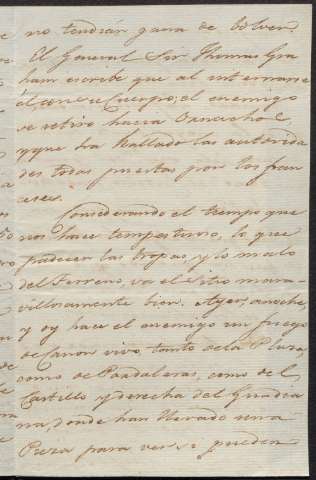 no tendrán gana de bolver.
El General Sir Thomas Gra
ham escribe que al internarse
él con su Cuerpo, el enemigo
se retiró hacia
y que ha hallado las autorida
des todas puestas por los fran
ceses.
Considerando el tiempo que
nos hace tempestuoso, lo que
padecen las tropas, y lo malo
del Terreno, va el Sitio mara-
villosamente bien. Ayer, anoche,
y oy hace el enemigo un fuego
de Cañon vivo, tanto de la Plaza,
como de Pardaleras, como del
Castillo y derecha del Guadia
na, donde han llevado una
Pieza para ver si pueden